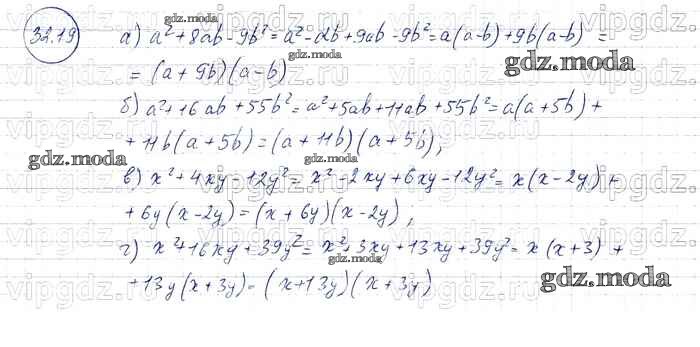 32.19
а) a² + 8ab - 9b² = a² - ab + 9ab - 9b² = a(a-b) + 9b(a-b) =
= (a + 9b)(a-b)
б) a² + 16ab + 55b² = a² + 5ab + 11ab + 55b² = a(a+5b) +
+ 11b(a + 5b) = (a + 11b)(a + 5b);
в) x² + 4xy - 12y² = x² - 2xy + 6xy - 12y² = x(x - 2y) +
+ 6y(x-2y) = (x + 6y)(x-2y);
г) x² + 16xy + 39y² = x² + 3xy + 13xy + 39y² = x(x+3) +
+ 13y(x+3y) = (x+13y)(x+3y);
gdz.moda
gdz.moda
gdz.moda
gdz.moda
gdz.moda
gdz.moda
gdz.moda
gdz.moda
vipgdz.ru
vipgdz.ru
vipgdz.ru